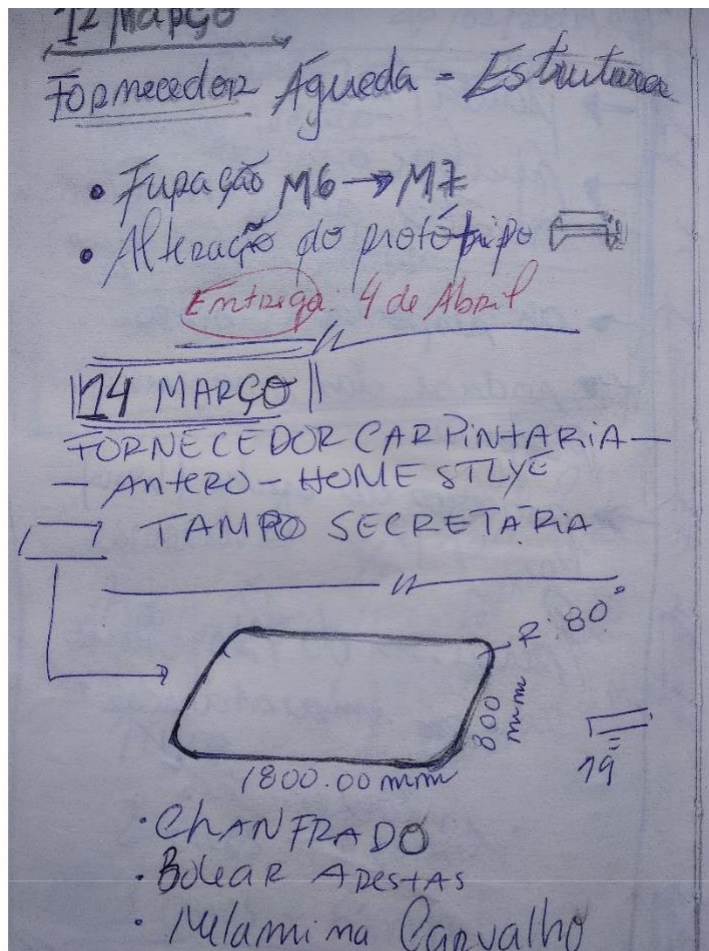 12 Março
Fornecedor Águeda - Estrutura
• Furação M6 → M7
• Alteração do protótipo
Entrega: 4 de Abril
14 MARÇO
FORNECEDOR CARPINTARIA -
- ANTERO - HOME STLYE
TAMPO SECRETÁRIA
R: 80°
800 mm
1800.00 mm
19
• CHANFRADO
• BOLEAR ARESTAS
• Melamina Carvalho